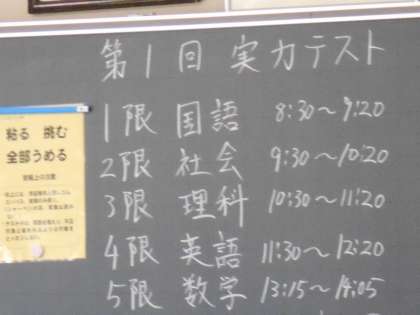 第1回 実力テスト
1限 国語 8:30〜9:20
2限 社会 9:30〜10:20
3限 理科 10:30〜11:20
4限 英語 11:30〜12:20
5限 数学 13:15〜14:05
粘る 挑む
全部うめる